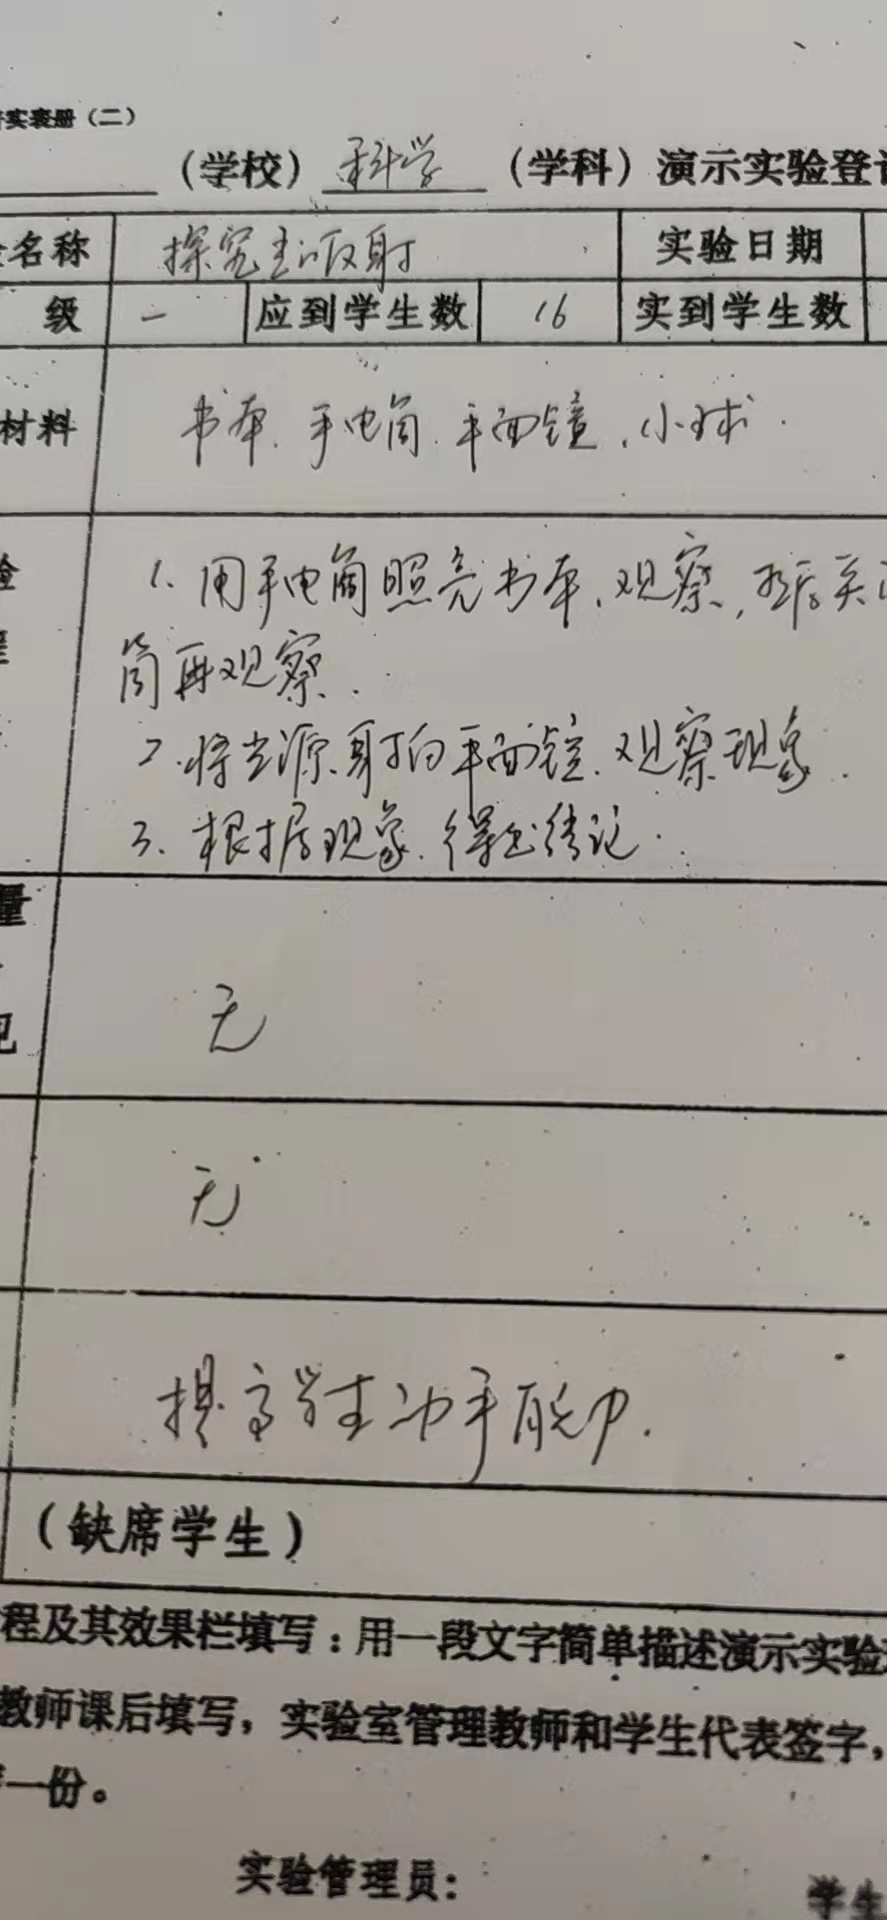 实表册（二）
（学校）科学（学科）演示实验登
名称 探究光的反射 实验日期
级 一 应到学生数 16 实到学生数
材料 书本、手电筒、平面镜、小球.
验 1. 用手电筒照亮书本、观察，然后关
筒再观察.
2. 将光源射向平面镜、观察现象.
3. 根据现象、得出结论.
量
见 无
无
提高学生动手能力.
（缺席学生）
程及其效果栏填写：用一段文字简单描述演示实验
教师课后填写，实验室管理教师和学生代表签字，
一份。
实验管理员： 学生